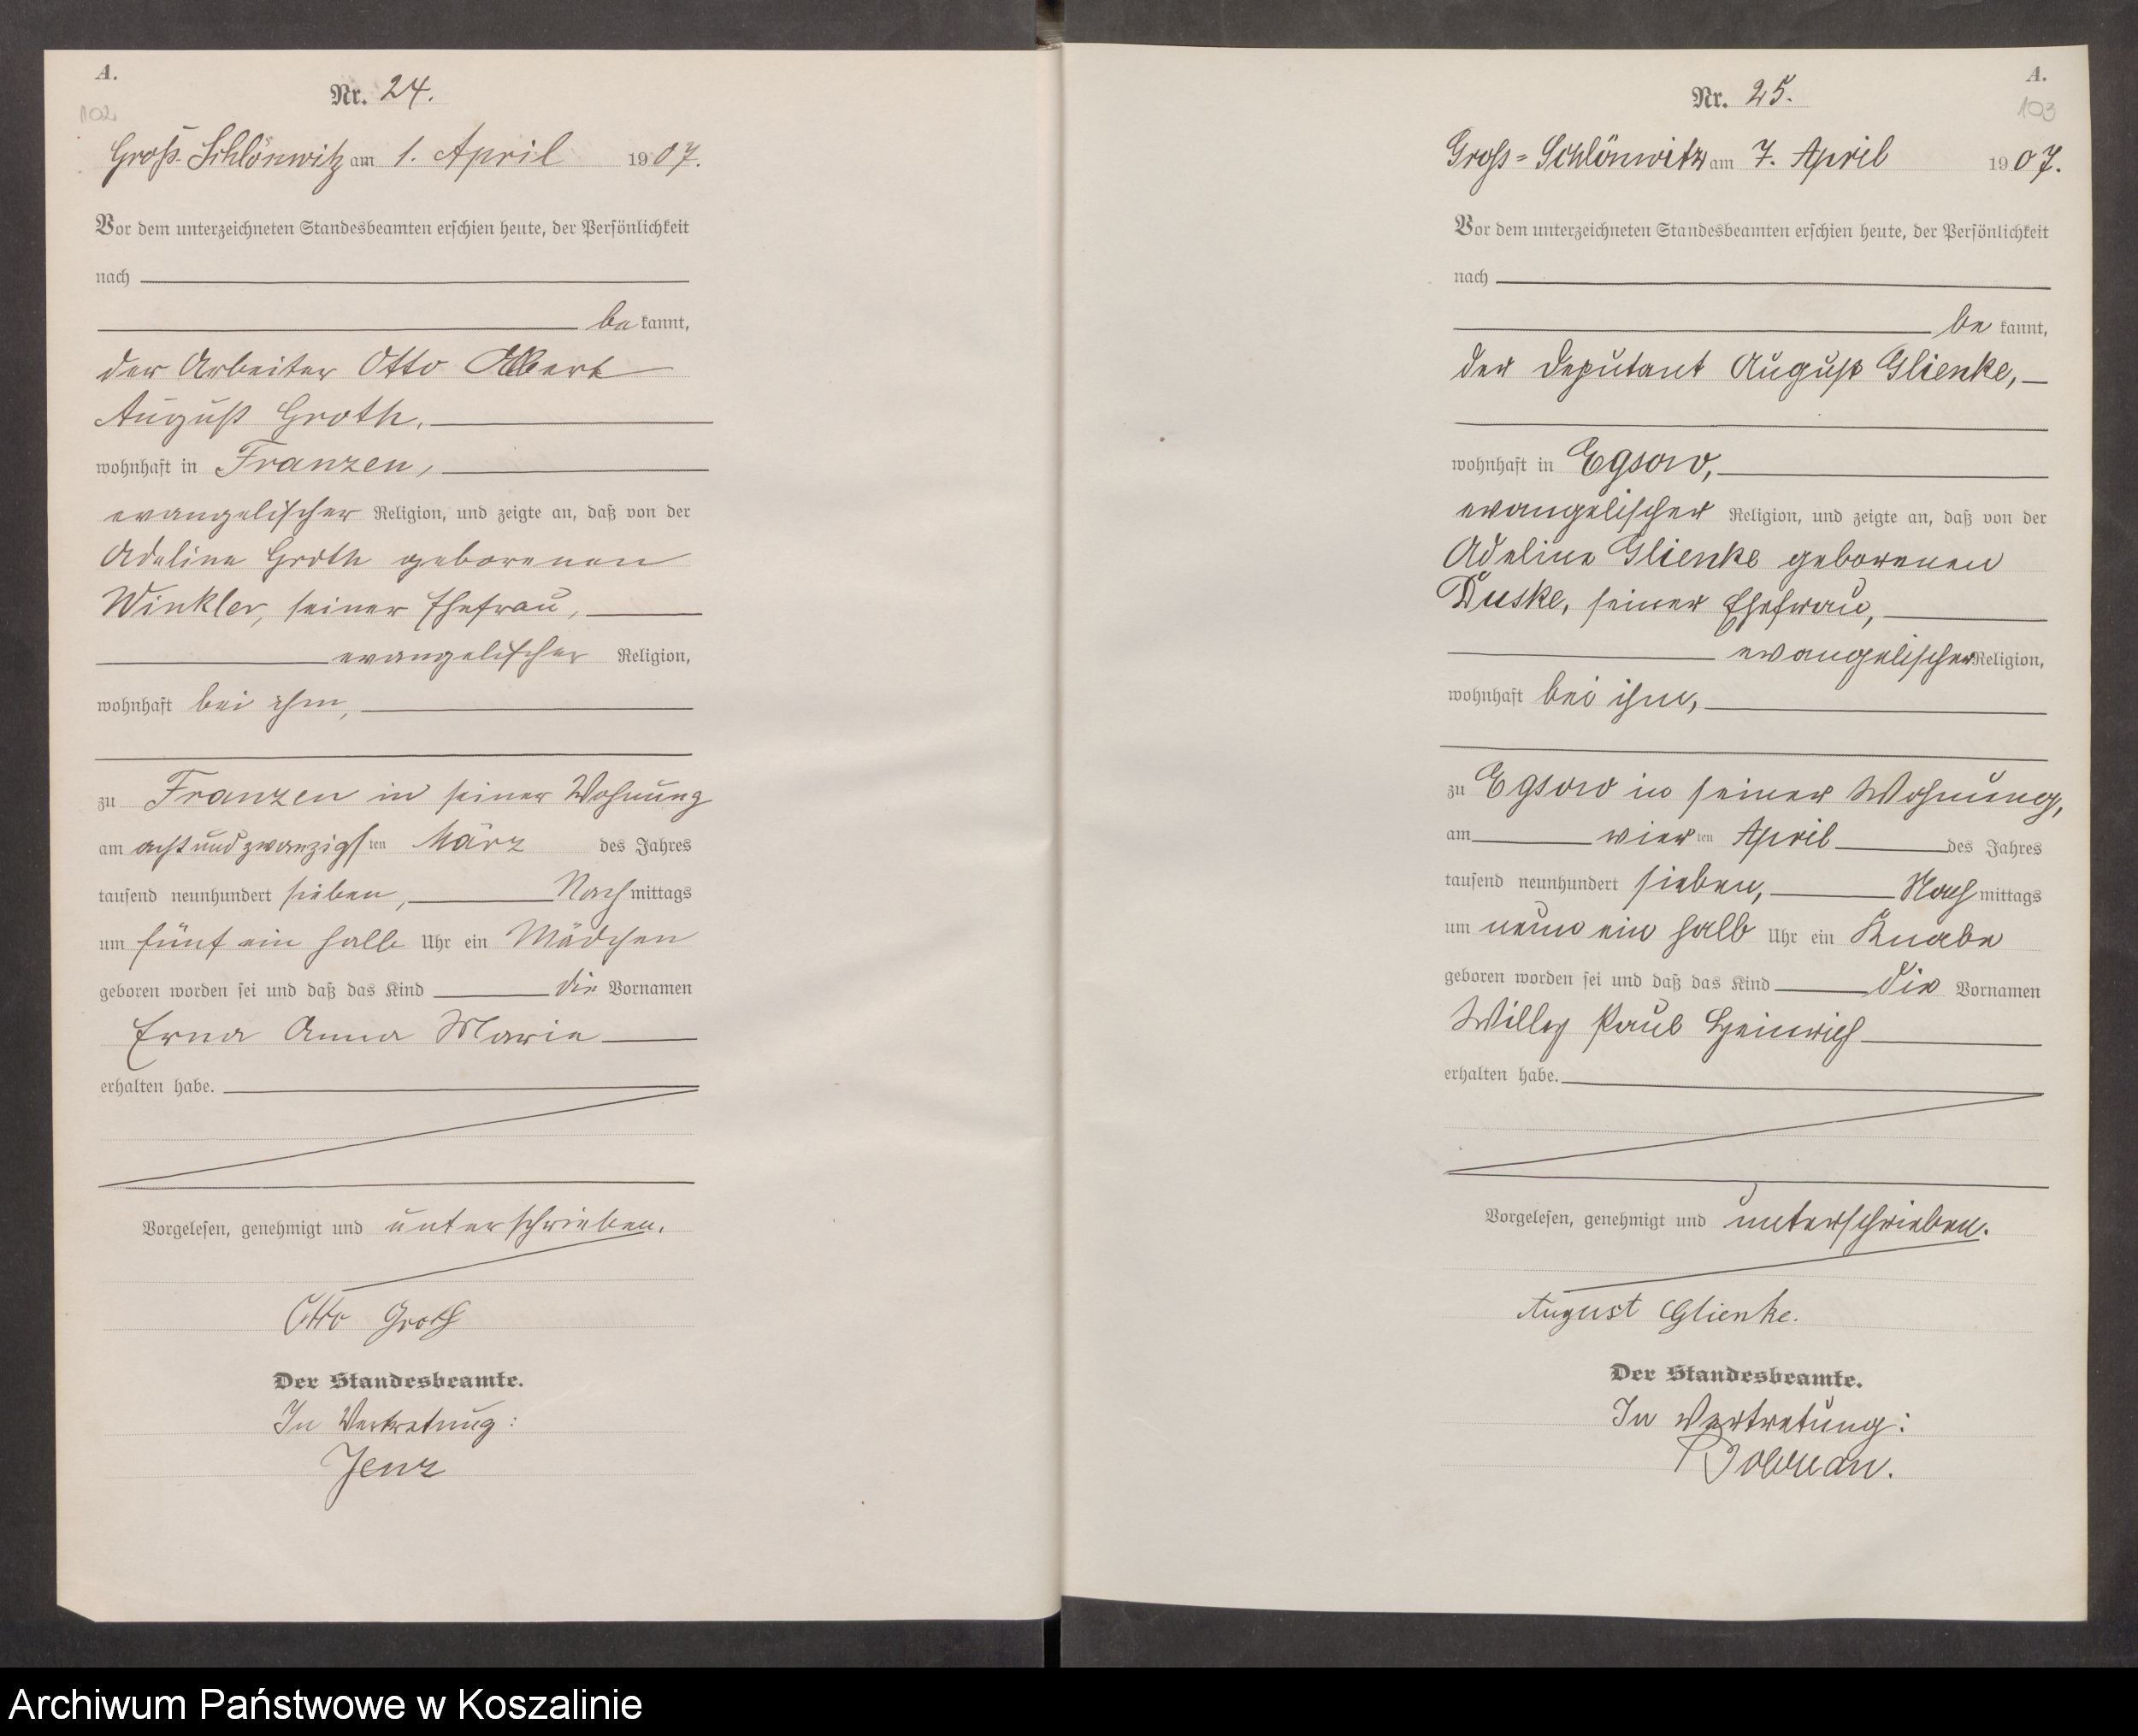 A.
Nr. 24.
102
Groß-Schlönwitz am 1. April 1907.
Vor dem unterzeichneten Standesbeamten erschien heute, der Persönlichkeit
nach
be kannt,
der Arbeiter Otto Albert
August Groth,
wohnhaft in Franzen,
evangelischer Religion, und zeigte an, daß von der
Adeline Groth geborenen
Winkler, seiner Ehefrau,
evangelischer Religion,
wohnhaft bei ihm,
zu Franzen in seiner Wohnung
am achtundzwanzigsten März des Jahres
tausend neunhundert sieben, Nachmittags
um fünf ein halb Uhr ein Mädchen
geboren worden sei und daß das Kind die Vornamen
Erna Anna Marie
erhalten habe.
Vorgelesen, genehmigt und unterschrieben.
Otto Groth
Der Standesbeamte.
In Vertretung:
Jenz
A.
Nr. 25.
103
Gross=Schlönwitz am 7. April 1907.
Vor dem unterzeichneten Standesbeamten erschien heute, der Persönlichkeit
nach
be kannt,
der Deputant August Glienke,
wohnhaft in Egsow,
evangelischer Religion, und zeigte an, daß von der
Adeline Glienke geborenen
Duske, seiner Ehefrau,
evangelischer Religion,
wohnhaft bei ihm,
zu Egsow in seiner Wohnung,
am vierten April des Jahres
tausend neunhundert sieben, Nachmittags
um neun ein halb Uhr ein Knabe
geboren worden sei und daß das Kind die Vornamen
Willy Paul Heinrich
erhalten habe.
Vorgelesen, genehmigt und unterschrieben.
August Glienke.
Der Standesbeamte.
In Vertretung:
Archiwum Państwowe w Koszalinie